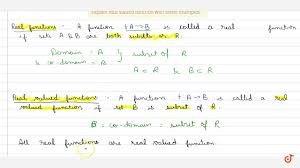 Explain real valued function with some examples
Real functions - A function f A→B is called a real function
if sets A & B are both subsets of R
Domain = A } subset of R
& co-domain = B
A ⊂ R & B ⊂ R
Real valued functions - A function f A→B is called a real
valued function if set B is subset of R
B = co-domain = subset of R
All real functions are real valued function.